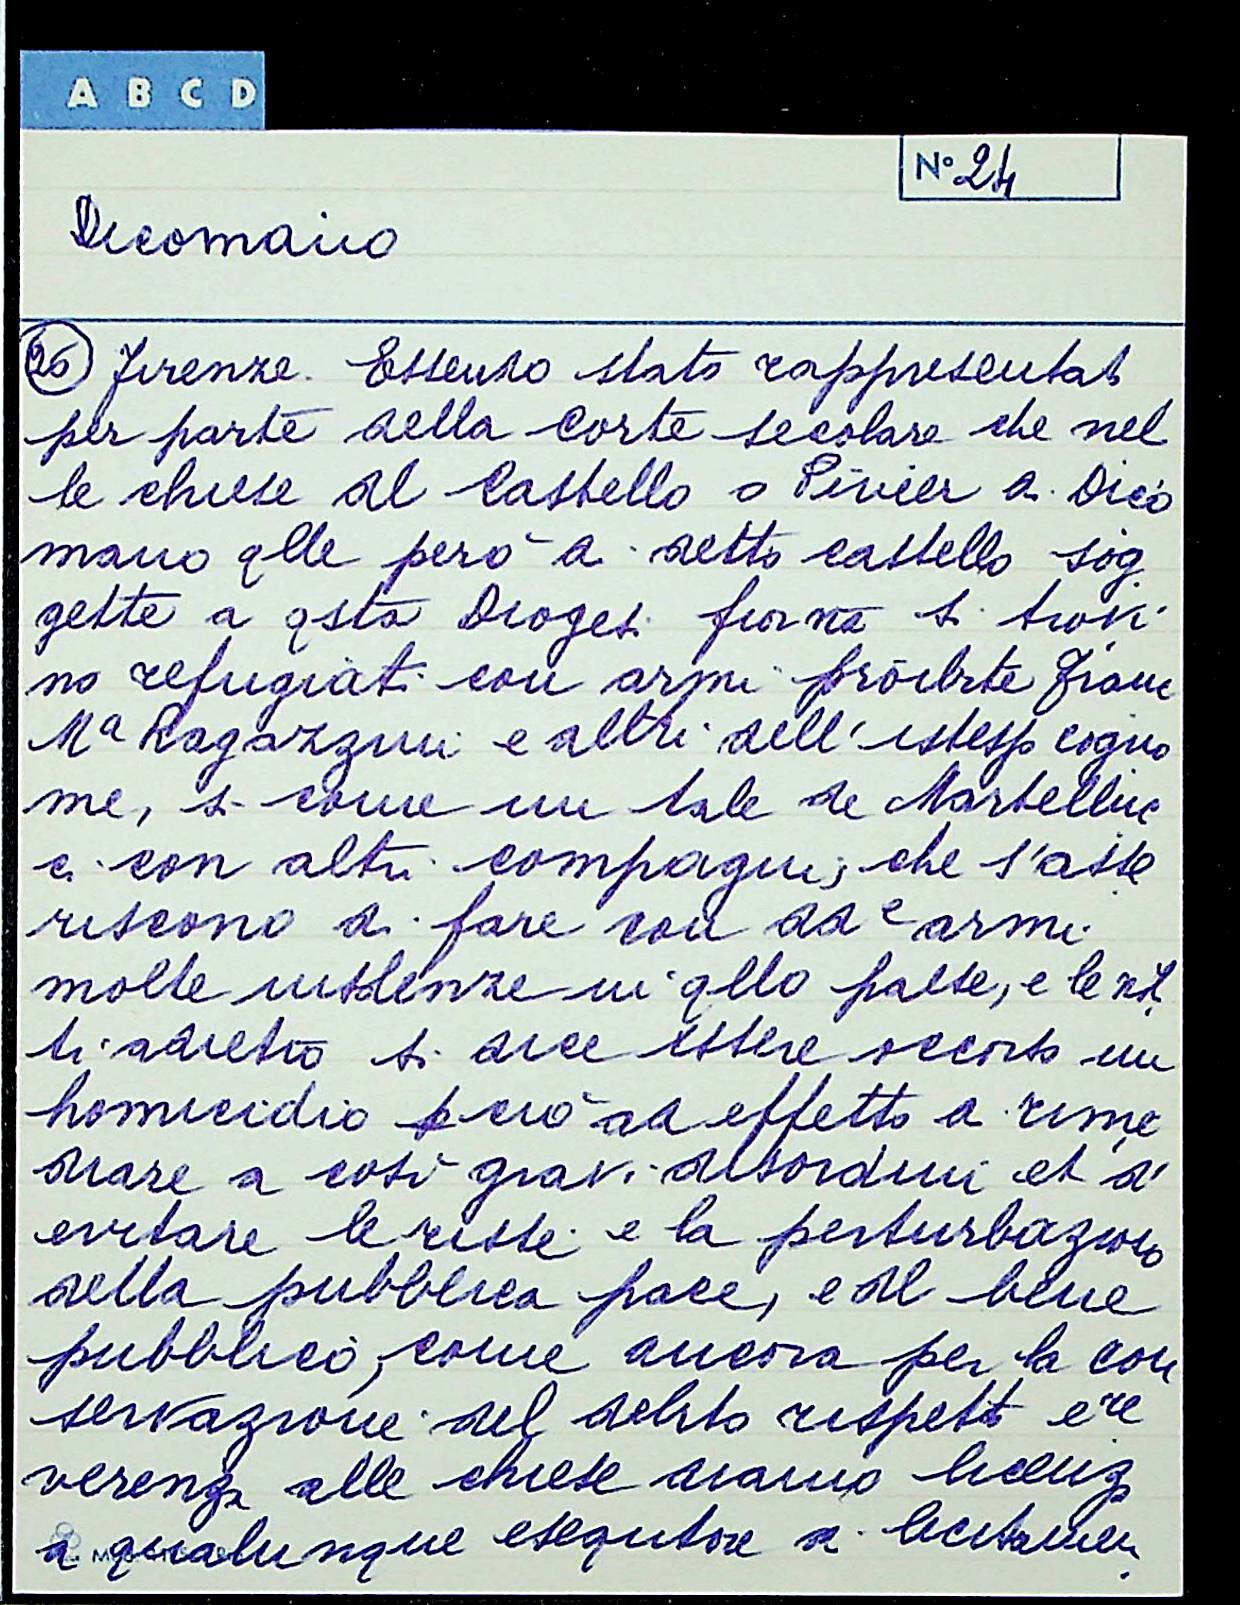 A B C D
N° 24
Dicomano
26 Firenze. Essendo stato rappresentato
per parte della Corte secolare che nel
le chiese del Castello o Pivier di Dico
mano qlle però di detto castello sog
gette a qsta Dioges. fior.na si trovi
no refugiati con armi proibite Franc
Mª Ragazzini e altri dell' istesso cogno
me, si come un tale de Martelluc
ci con altri compagni, che s'asse
riscono di fare con dd.e armi
molte insolenze in qllo paese, e le
ti adietro si dice essere occorso un
homicidio perciò ad effetto di rime
diare a così gravi disordini et d'
evitare le risse e la perturbazione
della pubblica pace, e del bene
pubblico, come ancora per la con
servazione del debito rispetto e re
verenza alle chiese diamo licenza
a qualunque esequtore di lecitamen.